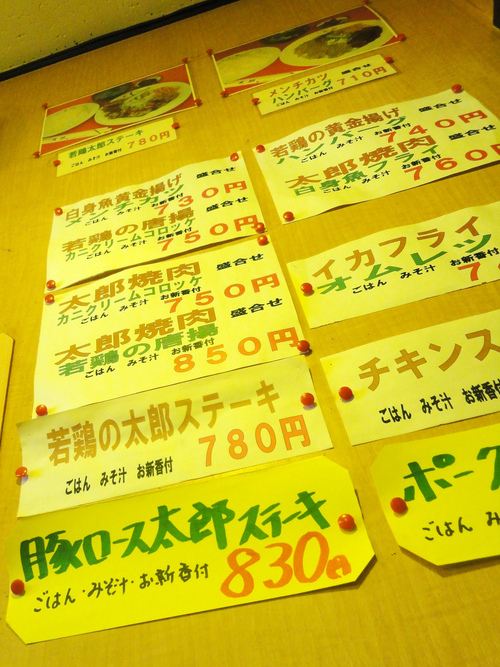 若鶏太郎ステーキ
ごはん みそ汁 お新香付 780円
メンチカツ 盛合せ
ハンバーグ
ごはん みそ汁 お新香付 710円
白身魚黄金揚げ 盛合せ
メンチカツ
ごはん みそ汁 お新香付 730円
若鶏の唐揚 盛合せ
カニクリームコロッケ
ごはん みそ汁 お新香付 750円
太郎焼肉 盛合せ
カニクリームコロッケ
ごはん みそ汁 お新香付 750円
太郎焼肉 盛合せ
若鶏の唐揚
ごはん みそ汁 お新香付 850円
若鶏の太郎ステーキ
ごはん みそ汁 お新香付 780円
豚ロース太郎ステーキ
ごはん・みそ汁・お新香付 830円
若鶏の黄金揚げ 盛合せ
ハンバーグ
ごはん みそ汁 お新香付 40円
太郎焼肉 盛合せ
白身魚フライ
ごはん みそ汁 お新香付 760円
イカフライ
オムレツ
ごはん みそ汁 お新香付 7
チキンス
ごはん みそ汁 お新香付
ポーク
ごはん み